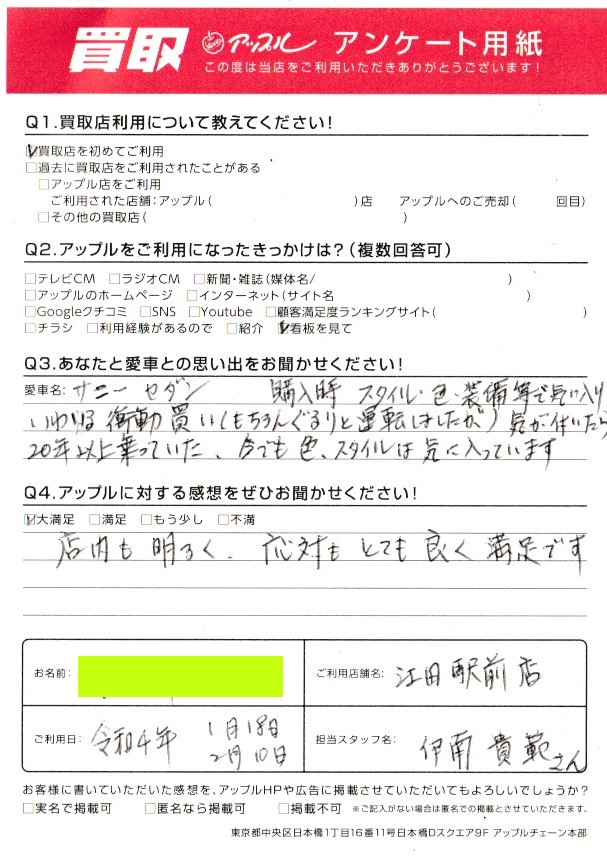 買取 アップル アンケート用紙
この度は当店をご利用いただきありがとうございます!
Q1.買取店利用について教えてください!
☑買取店を初めてご利用
□過去に買取店をご利用されたことがある
□アップル店をご利用
ご利用された店舗:アップル( )店 アップルへのご売却( 回目)
□その他の買取店( )
Q2.アップルをご利用になったきっかけは?(複数回答可)
□テレビCM □ラジオCM □新聞・雑誌(媒体名/ )
□アップルのホームページ □インターネット(サイト名 )
□Googleクチコミ □SNS □Youtube □顧客満足度ランキングサイト( )
□チラシ □利用経験があるので □紹介 ☑看板を見て
Q3.あなたと愛車との思い出をお聞かせください!
愛車名:サニーセダン 購入時 スタイル・色・装備等で気に入り
いわゆる衝動買い(もちろんぐるりと運転しましたが)気が付いたら
20年以上乗っていた、今でも色、スタイルは気に入っています
Q4.アップルに対する感想をぜひお聞かせください!
☑大満足 □満足 □もう少し □不満
店内も明るく、応対もとても良く満足です
お名前:
ご利用店舗名: 江田駅前店
ご利用日: 令和4年 1月18日
2月10日
担当スタッフ名: 伊南貴範さん
お客様に書いていただいた感想を、アップルHPや広告に掲載させていただいてもよろしいでしょうか?
□実名で掲載可 □匿名なら掲載可 □掲載不可 ※ご記入がない場合は匿名での掲載とさせていただきます。
東京都中央区日本橋1丁目16番11号日本橋Dスクエア9F アップルチェーン本部